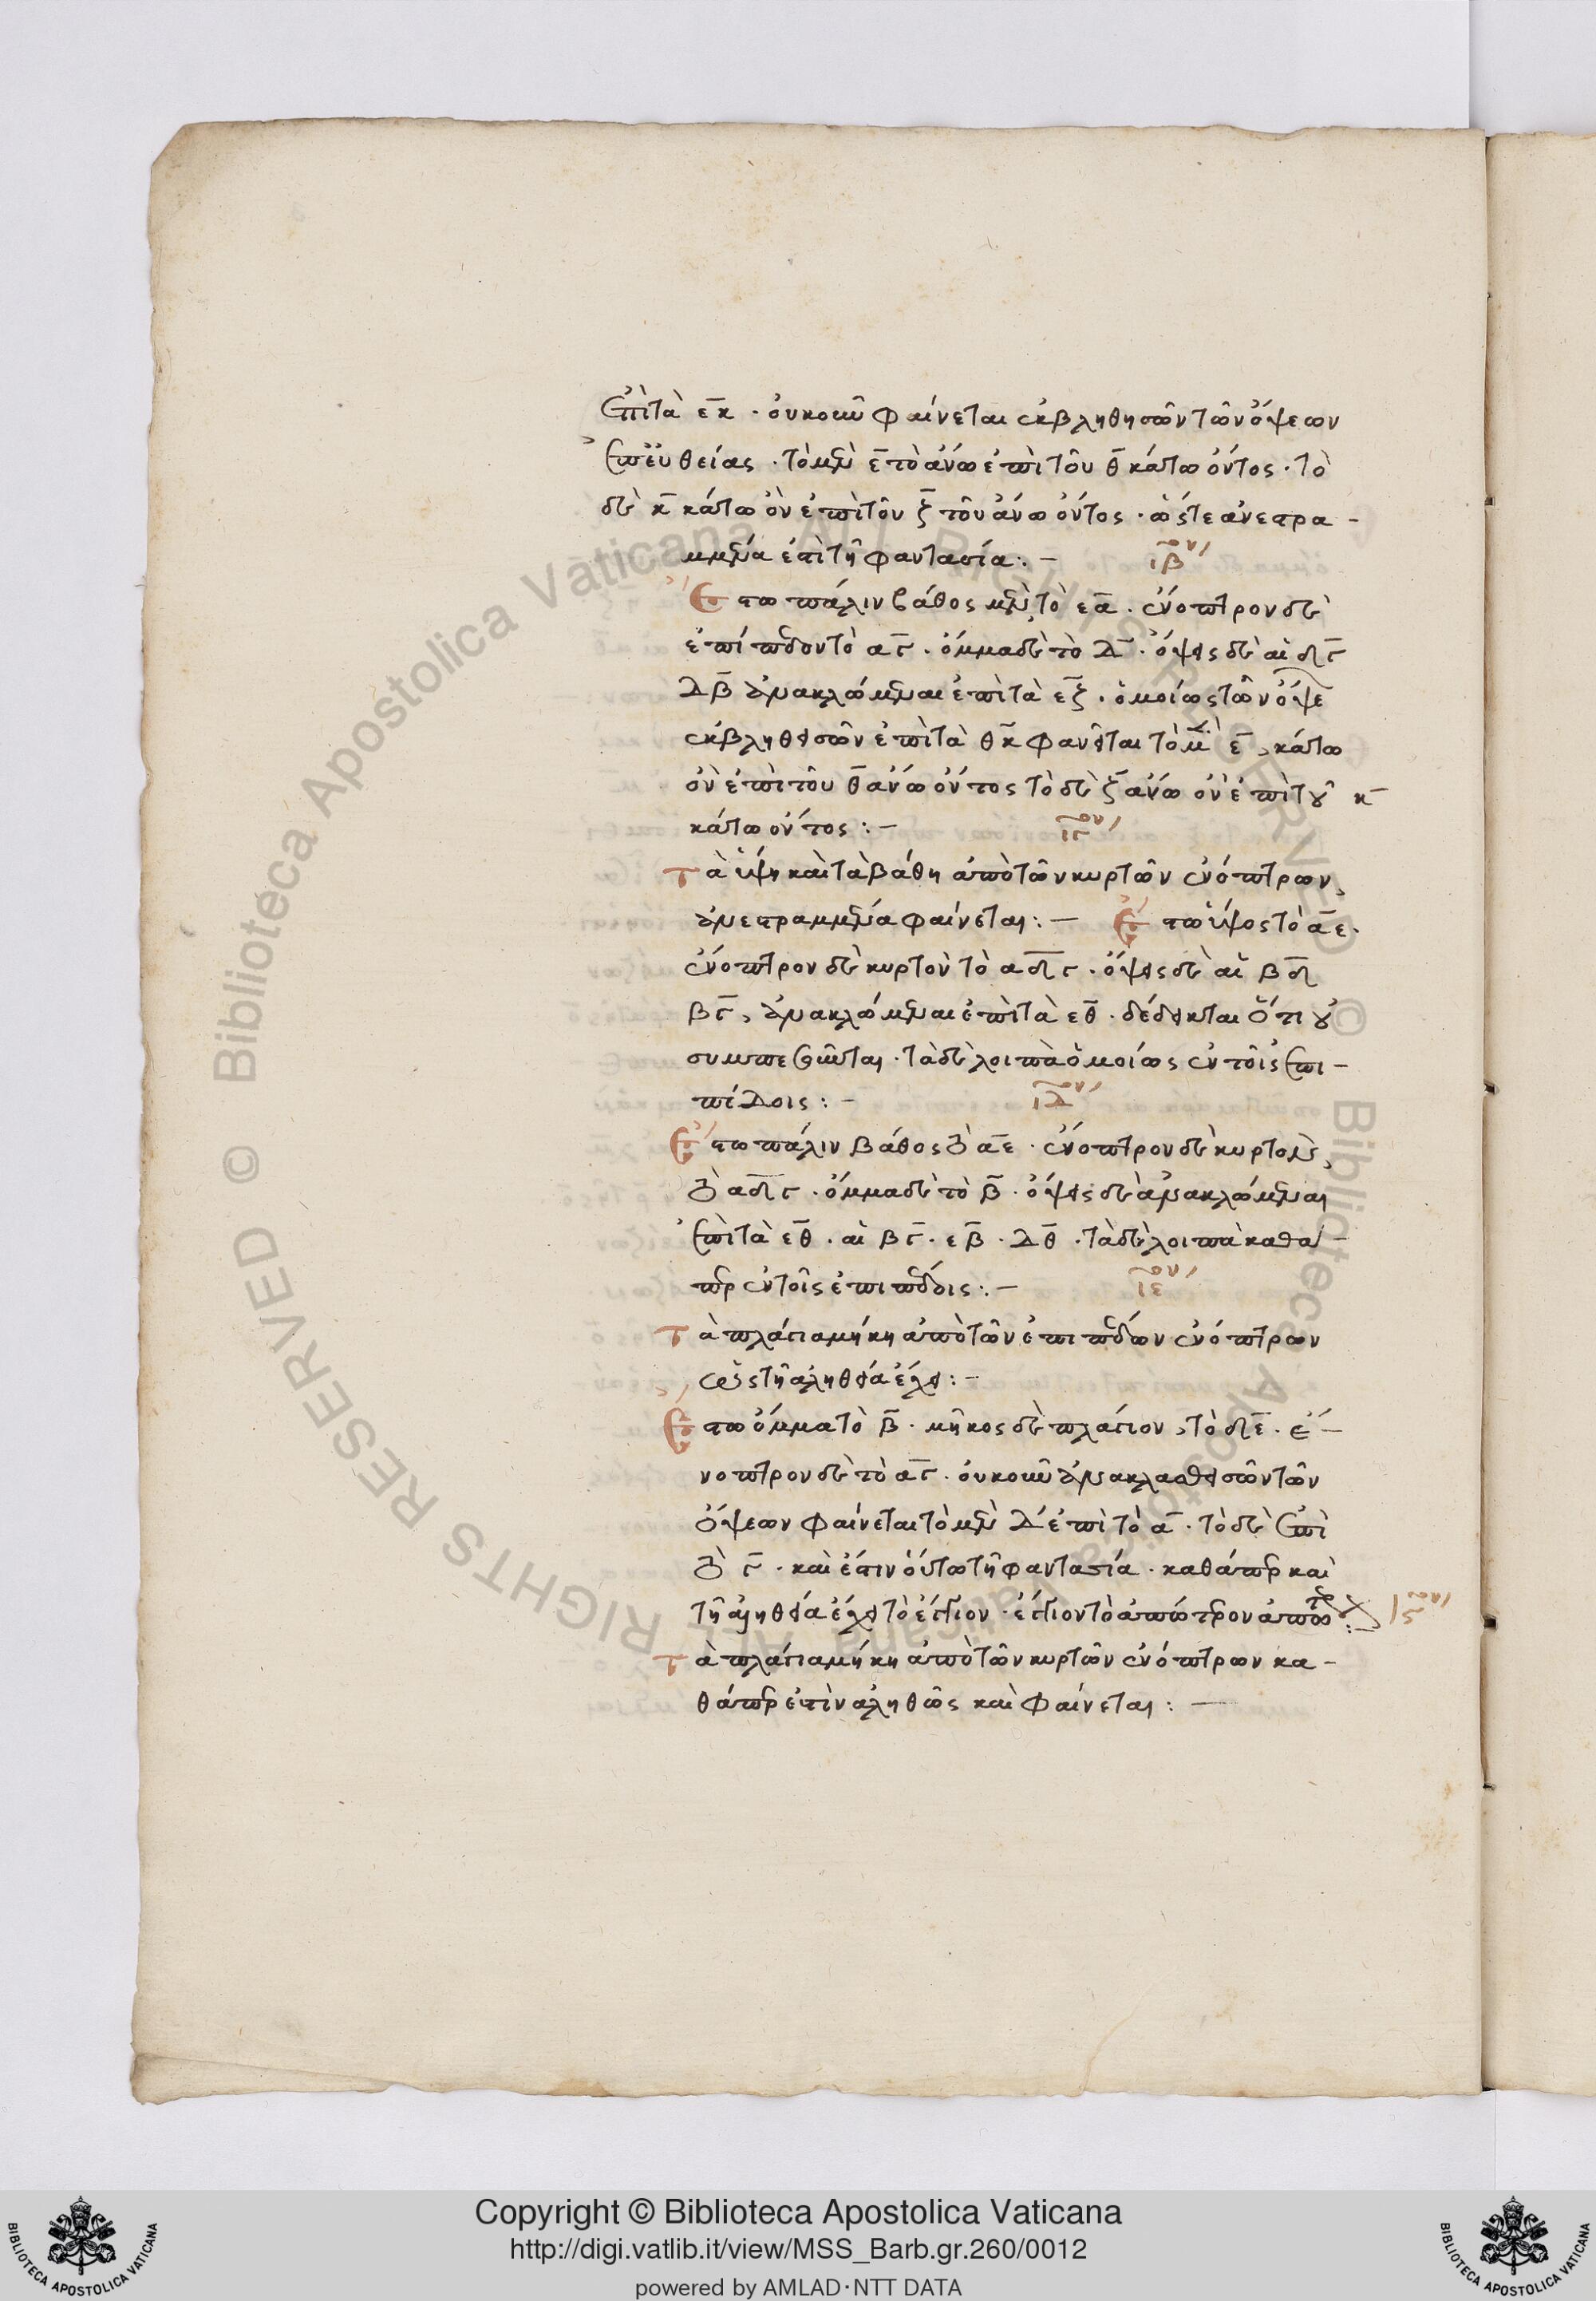 ἐπὶ τὰ ε κ̄ · οὐκοῦν φαίνεται ἐκβληθησῶν τῶν ὄψεων
ἐπευθείας · τὸ μὲν ε̄ τὸ ἄνω ἐπὶ τοῦ θ̄ κάτω ὄντος · τὸ
δὲ κ̄ κάτω ὂν ἐπὶ τοῦ ζ̄ τοῦ ἄνω ὄντος · ὥστε ἀνεστρα-
μμένα ἐστὶ τῇ φαντασίᾳ :-
ιβον
Ἔστω πάλιν βάθος μὲν τὸ ε ᾱ · ἔνοπτρον δὲ
ἐπίπεδον τὸ α γ̄ · ὄμμα δὲ τὸ δ̄ · ὄψεις δὲ αἱ δ γ̄
δ β̄ ἀνακλώμεναι ἐπὶ τὰ ε ζ̄ · ὁμοίως τῶν ὄψε
ἐκβληθεισῶν ἐπὶ τὰ θ κ̄ φανεῖται τὸ μὲν ε̄, κάτω
ὂν ἐπὶ τοῦ θ̄ ἄνω ὄντος τὸ δὲ ζ̄ ἄνω ὂν ἐπὶ τοῦ κ̄
κάτω ὄντος :-
ιγον
Τὰ ὕψη καὶ τὰ βάθη ἀπὸ τῶν κυρτῶν ἐνόπτρων,
ἀνεστραμμένα φαίνεται :- Ἔστω ὕψος τὸ α ε̄ ·
ἔνοπτρον δὲ κυρτὸν τὸ α δ γ̄ · ὄψεις δὲ αἱ β δ̄
β γ̄, ἀνακλώμεναι ἐπὶ τὰ ε θ̄ · δέδεικται ὅτι οὐ
συμπεσοῦνται · τὰ δὲ λοιπὰ ὁμοίως ἐν τοῖς ἐπι-
πέδοις :-
ιδον
Ἔστω πάλιν βάθος τὸ α ε̄ · ἔνοπτρον δὲ κυρτὸν,
τὸ α δ γ̄ · ὄμμα δὲ τὸ β̄ · ὄψεις δὲ ἀνακλώμεναι
ἐπὶ τὰ ε θ̄ · αἱ β γ̄ · ε β̄ · δ θ̄ · τὰ δὲ λοιπὰ καθά-
περ ἐν τοῖς ἐπιπέδοις :-
ιεον
Τὰ πλάγια μήκη ἀπὸ τῶν ἐπιπέδων ἐνόπτρων
ὡς τῇ ἀληθείᾳ ἔχει :-
Ἔστω ὄμμα τὸ β̄ · μῆκος δὲ πλάγιον, τὸ δ ε̄ · ἔ-
νοπτρον δὲ τὸ α γ̄ · οὐκοῦν ἀνακλασθεισῶν τῶν
ὄψεων φαίνεται τὸ μὲν δ ἐπὶ τὸ ᾱ · τὸ δὲ ε ἐπὶ
τὸ γ̄ · καὶ ἔστιν οὕτω τῇ φαντασίᾳ · καθάπερ καὶ
τῇ ἀληθείᾳ ἔχει τὸ ἔγγιον · ἔγγιον τὸ ἀπώτερον ἀπωτέρω :-
ιςον
Τὰ πλάγια μήκη ἀπὸ τῶν κυρτῶν ἐνόπτρων κα-
θάπερ ἐστὶν ἀληθῶς καὶ φαίνεται :-
Copyright © Biblioteca Apostolica Vaticana
http://digi.vatlib.it/view/MSS_Barb.gr.260/0012
powered by AMLAD·NTT DATA